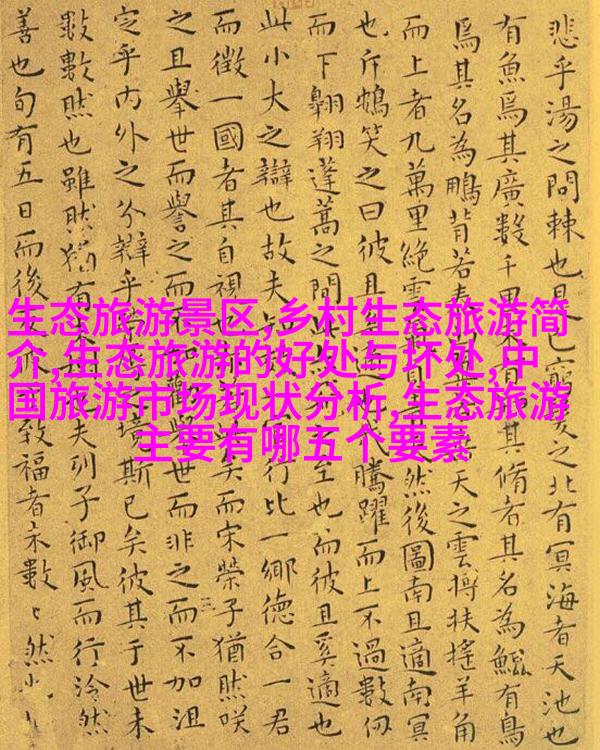 生态旅游景区,乡村生态旅游简
介,生态旅游的好处与坏处,中
国旅游市场现状分析,生态旅游
主要有哪五个要素
悲乎湯之問棘也是窮髮之北有冥海者天池也
有魚焉其廣數千里未有其脩者其名為鯤有鳥
焉其名為鵬背若泰天之雲摶扶搖羊角
而上者九萬里絕雲氣然後圖南且適南冥
也斥鴳笑之曰彼且騰躍而上不過數仞
而下翱翔蓬蒿之間此之至也而彼且奚適也
此小大之辯也故夫知行比一鄉德合一君
而徵一國者其自視也矣而宋榮子猶然咲
之且舉世而譽之而不加勸舉世而非之而不加沮
定乎內外之分辯乎之境斯已矣彼其于世未
數數然也雖然猶有未夫列子御風而行泠然
善也旬有五日而後致福者未數〻然